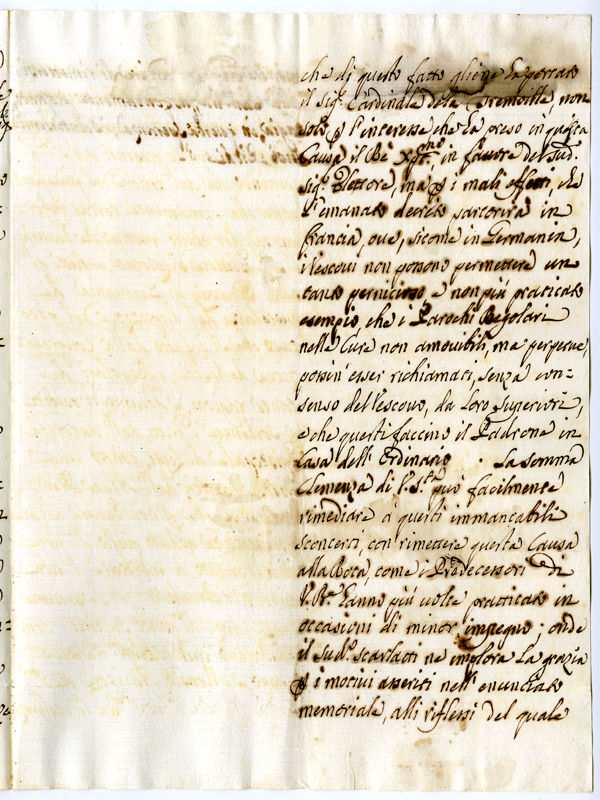 che di questo fatto gliene ha portato
il Sig.r Cardinale della Tremoille, non
solo p l'interesse, che ha preso in questa
Causa il Rè Xpt.mo in favore del sud.o
Sig.r Elettore, ma p i mali effetti, che
l'emanato decreto partorirà in
francia, ove, sicome in Germania,
i Vescovi non possono permettere un
tanto pernicioso, e non più praticato
esempio, che i Parochi Regolari
nelle Cure non amovibili, ma perpetue,
possin' esser richiamati, senza con=
senso del Vescovo, da loro Superiori,
e che questi faccino il Padrone in
Casa dell' Ordinario. La somma
Clemenza di V. S.tà può facilmente
rimediare à questi immancabili
sconcerti, con rimettere questa Causa
alla Rota, come i Predecessori di
V. B.ne hanno più volte practicato in
occasioni di minor impegno; onde
il sud.o Scarlatti ne implora la grazia
p i motivi asseriti nell' enunciato
memoriale, alli riflessi del quale